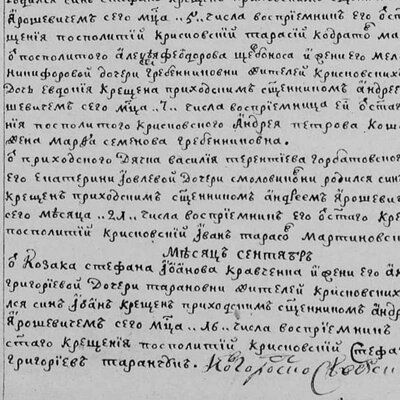 ꙗрошевичемъ сего мц҃а ..5.. числа воспрїемникъ его ѡ҃т
щенїя посполитїй крисновскїй тарасїй кодрато
ѡ҃ посполитого федорова щербоноса и жени его
никифоровой дочери гребенниковни жителей крисновскихъ
дочь евдокїя крещена приходскимъ священникомъ андрее
шевичемъ сего мц҃а ..7.. числа воспрїемница ей ѡ҃ ста
нїя посполитого крисновского андрея петрова
жена марѳа семенова гребенниковна.
ѡ҃ приходского дячка василїя терентїева горбатовско
его екатерини ꙗковлевой дочери родился синъ
крещенъ приходскимъ священникомъ андреемъ ꙗрошеви
сего месяца ..21.. числа воспрїемникъ его ѡ҃ стаго кре
посполитїй крисновскїй иванъ тарасо мартиновс
месяцъ сентябръ
ѡ҃ козака стефана іоанова кравченка и жени его ан
григорїевой дочери тарановни жителей крисновскихъ
лся синъ іоанъ крещенъ приходскимъ священникомъ андр
ꙗрошевичемъ сего мц҃а ..16.. числа воспрїемникъ
стаго крещенїя посполитїй крисновскїй стефа
григорїевъ